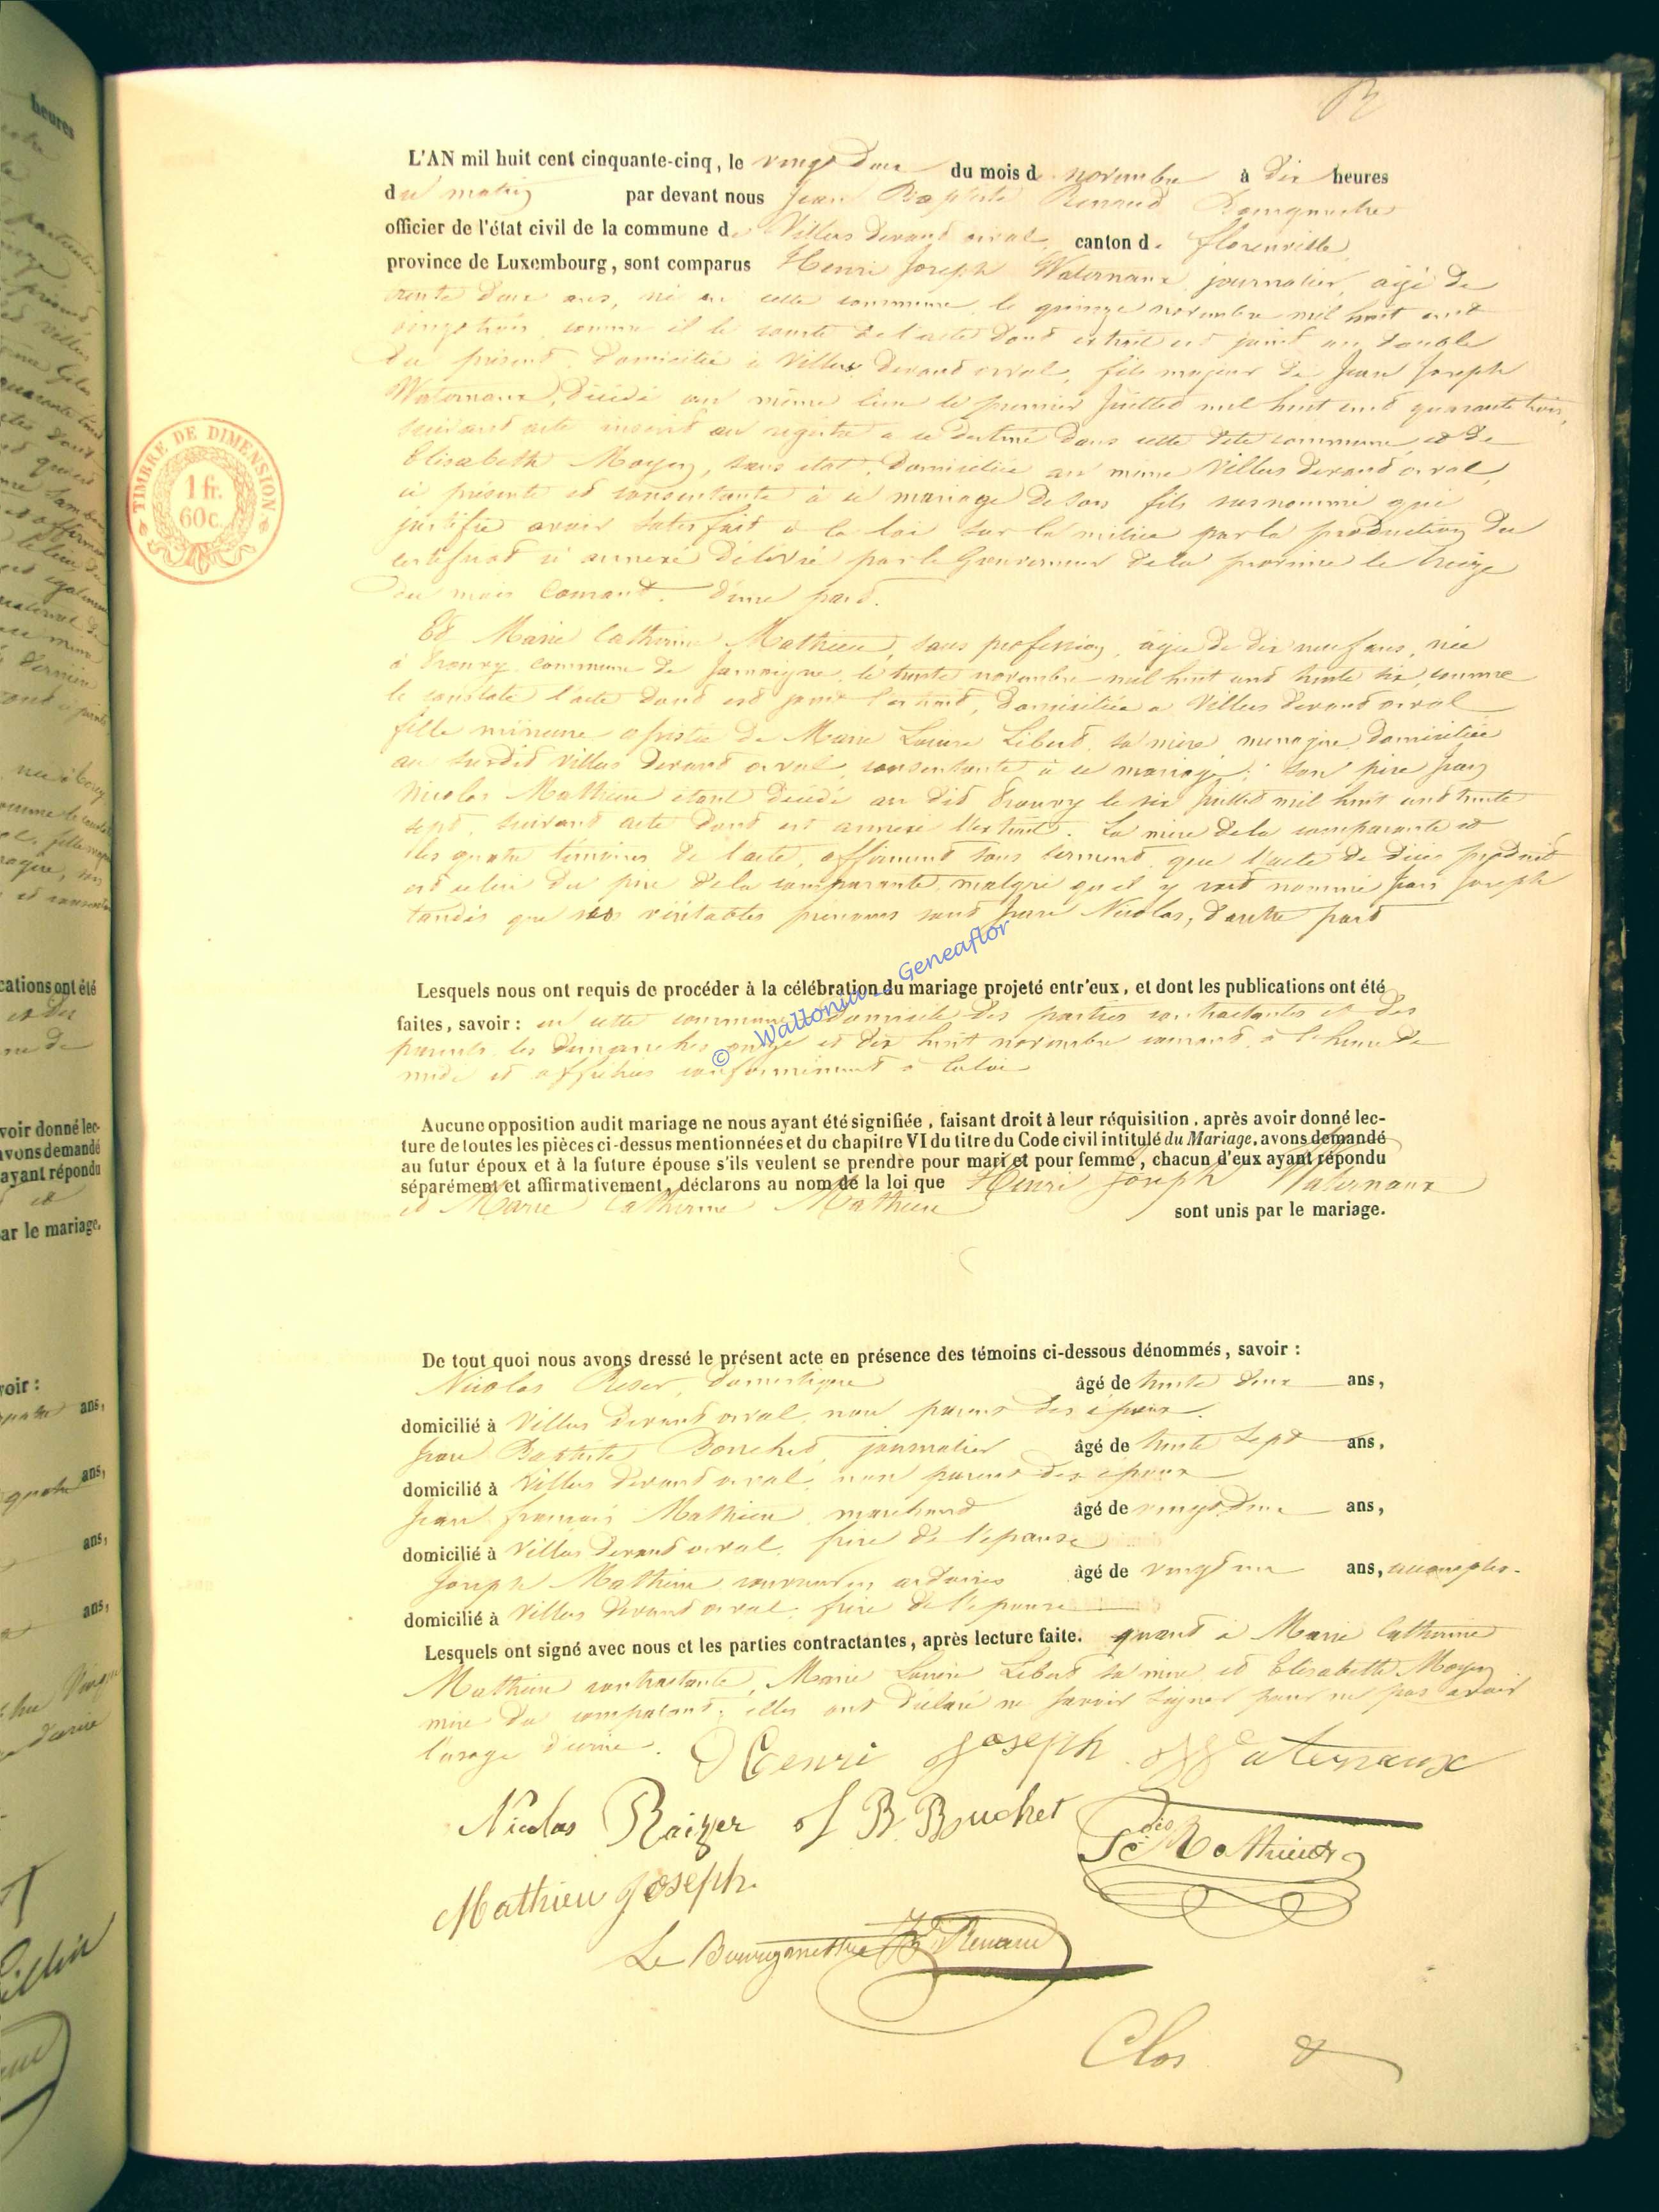 L'AN mil huit cent cinquante-cinq, le vingt deux du mois de novembre à dix heures
du matin par devant nous Jean Baptiste Renaud Bourgmestre
officier de l'état civil de la commune de Villers devant orval, canton de florenville,
province de Luxembourg, sont comparus Henri Joseph Waternaux journalier, agé de
trente deux ans, né en cette commune le quinze novembre mil huit cent
vingt trois, comme il le conste de l'acte dont extrait est joint au double
du présent, domicilié à Villers devant orval, fils majeur de Jean Joseph
Waternaux, décédé au même lieu le premier Juillet mil huit cent quarante trois,
suivant acte inscrit au registre a ce destiné dans cette dite commune, et de
Elisabeth Moyen, sans etat, domiciliée au même Villers devant orval,
ci présente et consentante à ce mariage de son fils susnommé qui
justifie avoir satisfait a la loi sur la milice par la production du
certificat ci annexé délivré par le Gouverneur de la province le treize
du mois Courant. D'une part.
Et Marie Catherine Mathieu, sans profession, agée de dix neuf ans, née
à Prouvy commune de Jamoigne, le trente novembre mil huit cent trente six, comme
le constate l'acte dont est joint l'extrait, domiciliée a Villers devant orval
fille mineure assistée de Marie Louise Libert sa mère, menagère, domiciliée
au susdit Villers devant orval, consentante à ce mariage; son père Jean
Nicolas Mathieu étant décédé au dit Prouvy le six Juillet mil huit cent trente
sept, suivant acte dont est annexé l'extrait. La mère de la comparante et
les quatre témoins de l'acte, affirment sous serment, que l'acte de décès produit
est celui du père de la comparante, malgré qu'il y soit nommé Jean Joseph
tandis que ses véritables prénoms sont Jean Nicolas, d'autre part
© Wallonia Geneaflor
Lesquels nous ont requis de procéder à la célébration du mariage projeté entr'eux, et dont les publications ont été
faites, savoir : en cette commune domicile des parties contractantes et des
parents les dimanches onze et dix huit novembre courant, à l'heure de
midi et affichées conformément à la loi
Aucune opposition audit mariage ne nous ayant été signifiée, faisant droit à leur réquisition, après avoir donné lec-
ture de toutes les pièces ci-dessus mentionnées et du chapitre VI du titre du Code civil intitulé du Mariage, avons demandé
au futur époux et à la future épouse s'ils veulent se prendre pour mari et pour femme, chacun d'eux ayant répondu
séparément et affirmativement, déclarons au nom de la loi que Henri Joseph Waternaux
et Marie Catherine Mathieu sont unis par le mariage.
De tout quoi nous avons dressé le présent acte en présence des témoins ci-dessous dénommés, savoir :
Nicolas Reser, domestique âgé de trente deux ans,
domicilié à Villers devant orval, non parent des époux.
Jean Baptiste Bouchet, journalier âgé de trente sept ans,
domicilié à Villers devant orval, non parent des époux
Jean françois Mathieu, marchand âgé de vingt deux ans,
domicilié à Villers devant orval, frère de l'épouse
Joseph Mathieu couvreur en ardoises âgé de vingt un ans, accomplis.
domicilié à Villers devant orval, frère de l'épouse
Lesquels ont signé avec nous et les parties contractantes, après lecture faite. quant à Marie Catherine
Mathieu contractante, Marie Louise Libert sa mère et Elisabeth Moyen
mère du comparant, elles ont déclaré ne savoir signer pour ne pas avoir
l'usage d'écrire. Henri Joseph Waternaux
Nicolas Raizer J B. Buchet Mathieu
Mathieu Joseph.
Le Bourgmestre JB Renaud
Clos
TIMBRE DE DIMENSION
1 fr.
60c.